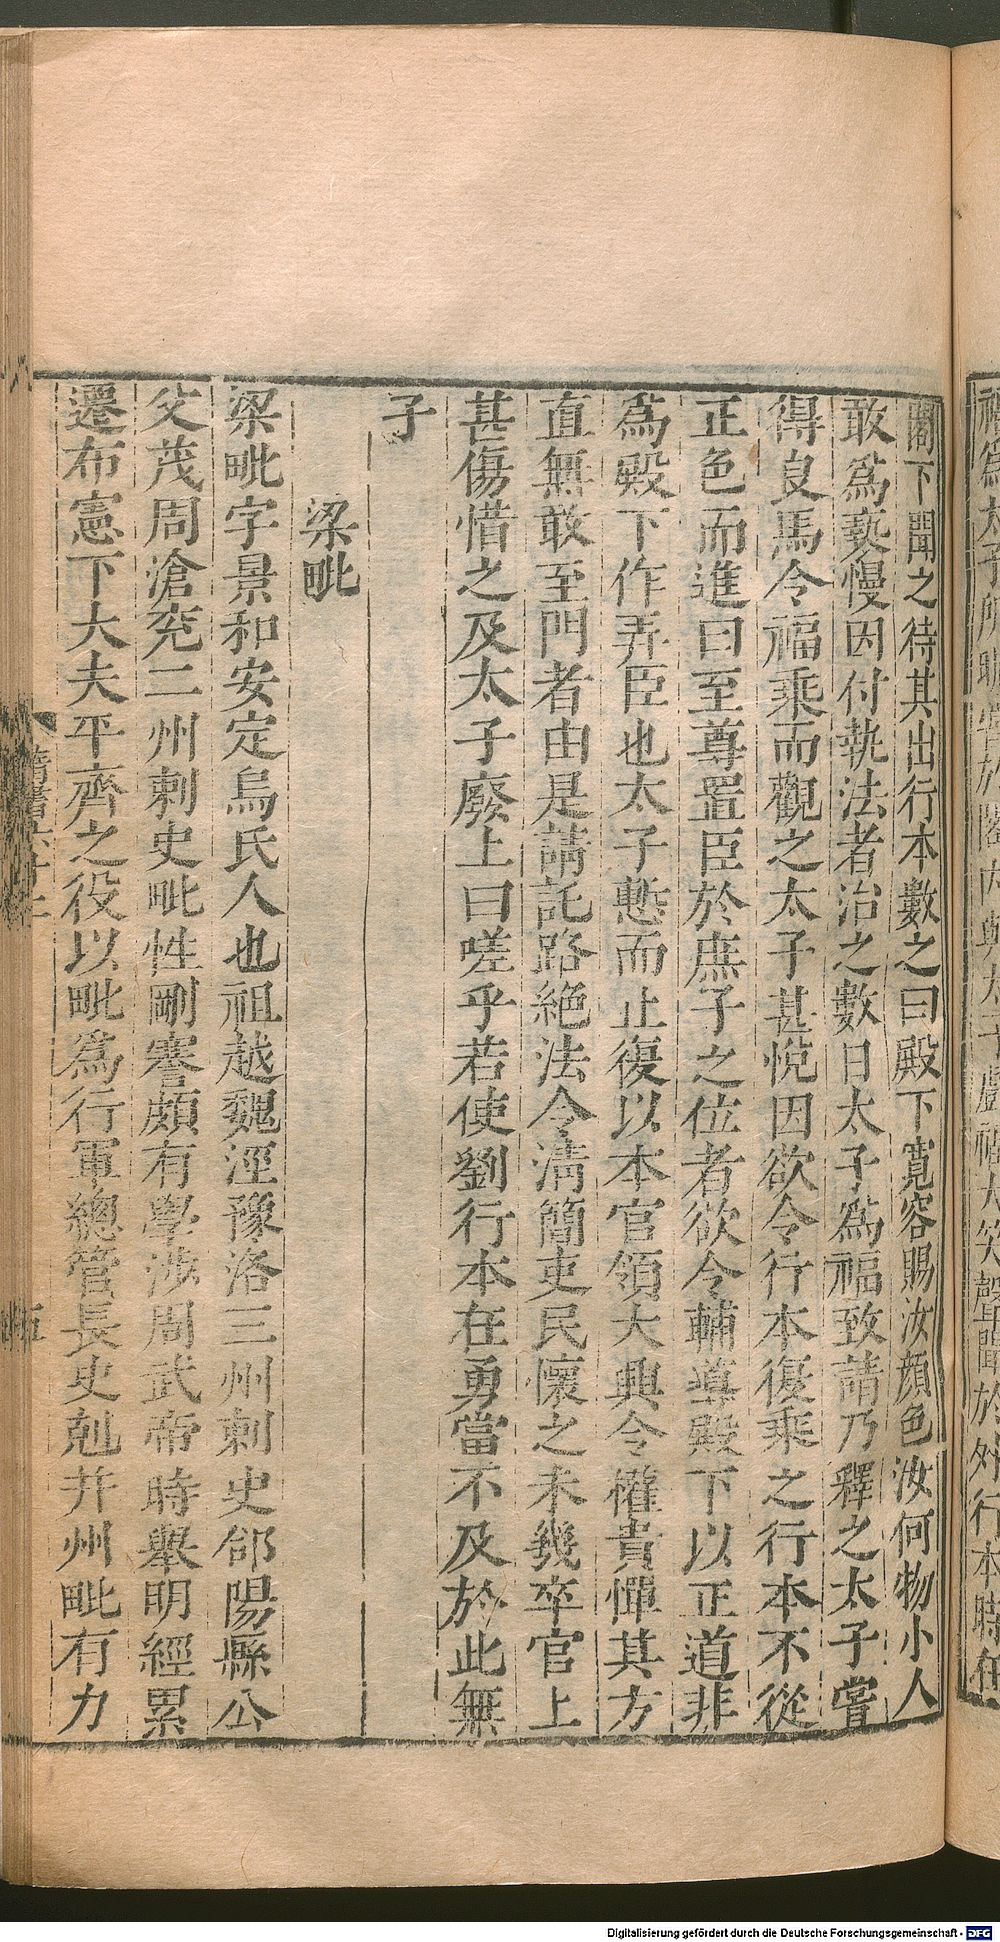 閣下聞之待其出行本數之曰殿下寬容賜汝顏色汝何物小人
敢爲褻慢因付執法者治之數日太子爲福致請乃釋之太子嘗
得良馬令福乘而觀之太子甚悅因欲令行本復乘之行本不從
正色而進曰至尊置臣於庶子之位者欲令輔導殿下以正道非
爲殿下作弄臣也太子慙而止復以本官領大興令權貴憚其方
直無敢至門者由是請託路絕法令清簡吏民懷之未幾卒官上
甚傷惜之及太子廢上曰嗟乎若使劉行本在勇當不及於此無
子
梁毗
梁毗字景和安定烏氏人也祖越魏涇豫洛三州刺史郃陽縣公
父茂周滄兖二州刺史毗性剛謇頗有學涉周武帝時舉明經累
遷布憲下大夫平齊之役以毗爲行軍總管長史尅并州毗有力
Digitalisierung gefördert durch die Deutsche Forschungsgemeinschaft - DFG